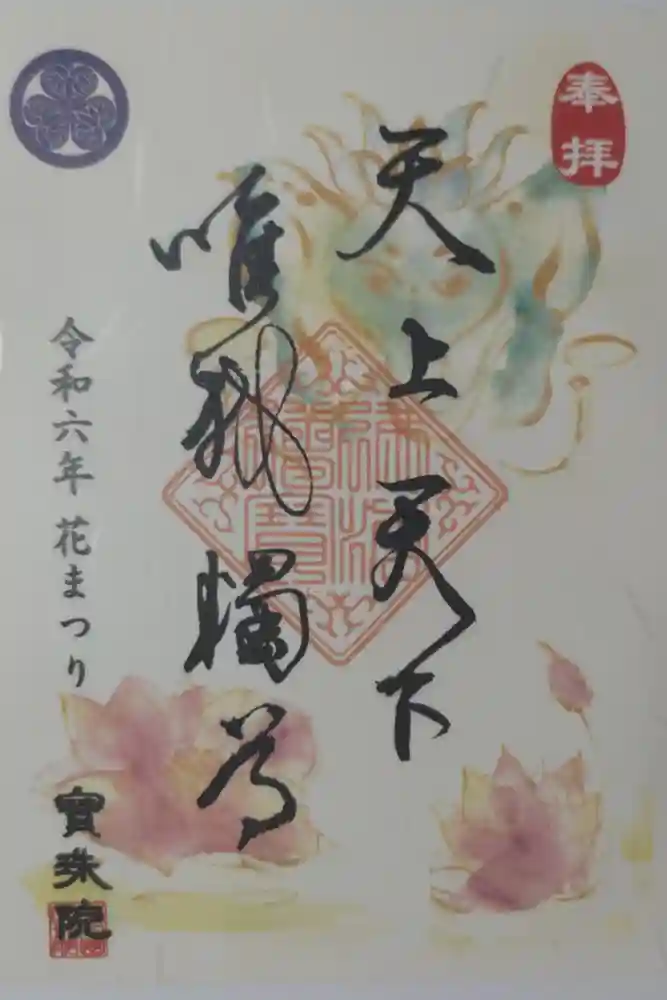 奉拝
天上天下
唯我獨尊
令和六年 花まつり
寳珠院